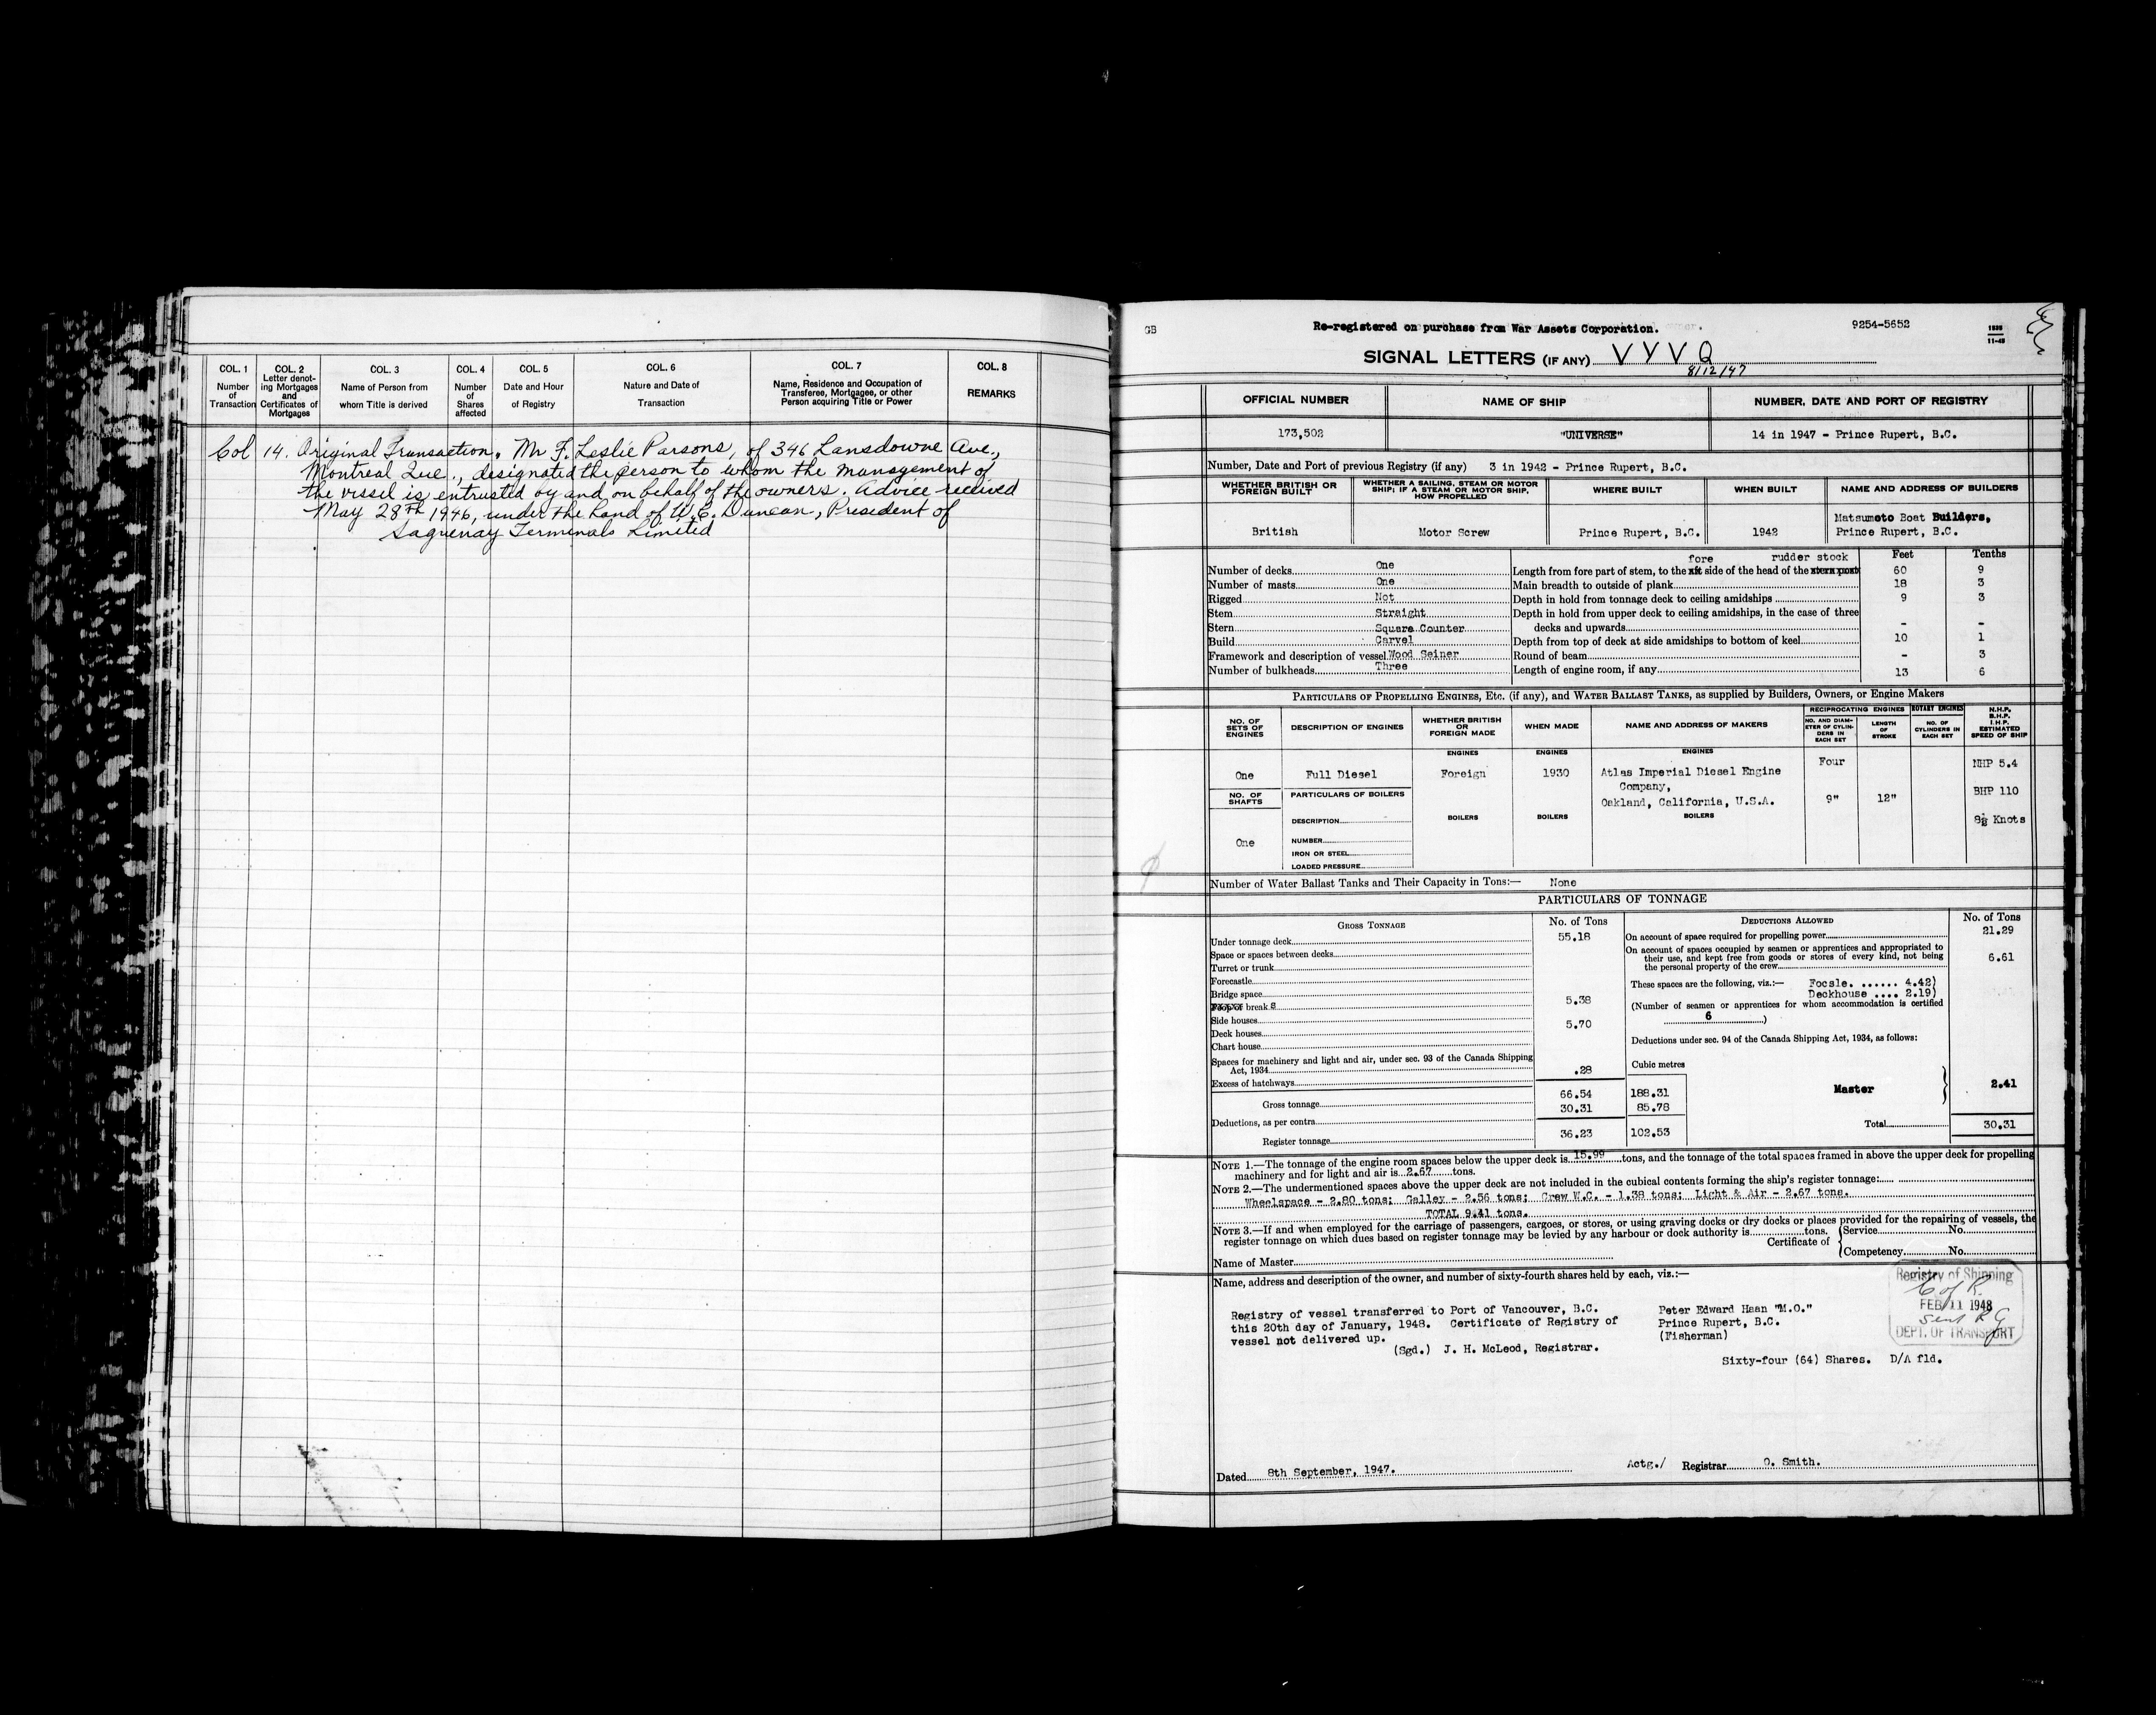 COL. 1 COL. 2 COL. 3 COL. 4 COL. 5 COL. 6 COL. 7 COL. 8
Number of Transaction
Letter denoting Mortgages and Certificates of Mortgages
Name of Person from whom Title is derived
Number of Shares affected
Date and Hour of Registry
Nature and Date of Transaction
Name, Residence and Occupation of Transferee, Mortgagee, or other Person acquiring Title or Power
REMARKS
Col 14. Original Transaction. Mr F. Leslie Parsons, of 346 Lansdowne Ave.,
Montreal Que., designated the person to whom the management of
the vessel is entrusted by and on behalf of the owners. Advice received
May 28th 1946, under the hand of W.E. Duncan, President of
Saguenay Terminals Limited
GB
Re-registered on purchase from War Assets Corporation.
9254-5652
SIGNAL LETTERS (IF ANY) VYVQ
8/12/47
OFFICIAL NUMBER NAME OF SHIP NUMBER, DATE AND PORT OF REGISTRY
173,502 "UNIVERSE" 14 in 1947 - Prince Rupert, B.C.
Number, Date and Port of previous Registry (if any) 3 in 1942 - Prince Rupert, B.C.
WHETHER BRITISH OR FOREIGN BUILT
WHETHER A SAILING, STEAM OR MOTOR SHIP; IF A STEAM OR MOTOR SHIP, HOW PROPELLED
WHERE BUILT
WHEN BUILT
NAME AND ADDRESS OF BUILDERS
British Motor Screw Prince Rupert, B.C. 1942
Matsumoto Boat Builders,
Prince Rupert, B.C.
Number of decks One
Number of masts One
Rigged Not
Stem Straight
Stern Square Counter
Build Carvel
Framework and description of vessel Wood Seiner
Number of bulkheads Three
Feet Tenths
fore rudder stock
Length from fore part of stem, to the aft side of the head of the stern post 60 9
Main breadth to outside of plank 18 3
Depth in hold from tonnage deck to ceiling amidships 9 3
Depth in hold from upper deck to ceiling amidships, in the case of three
decks and upwards - -
Depth from top of deck at side amidships to bottom of keel 10 1
Round of beam - 3
Length of engine room, if any 13 6
PARTICULARS OF PROPELLING ENGINES, ETC. (if any), and WATER BALLAST TANKS, as supplied by Builders, Owners, or Engine Makers
NO. OF SETS OF ENGINES
DESCRIPTION OF ENGINES
WHETHER BRITISH OR FOREIGN MADE
WHEN MADE
NAME AND ADDRESS OF MAKERS
RECIPROCATING ENGINES ROTARY ENGINES
NO. AND DIAMETER OF CYLINDERS IN EACH SET
LENGTH OF STROKE
NO. OF CYLINDERS IN EACH SET
N.H.P. B.H.P. I.H.P. ESTIMATED SPEED OF SHIP
ENGINES ENGINES ENGINES
One Full Diesel Foreign 1930 Atlas Imperial Diesel Engine Four NHP 5.4
Company,
Oakland, California, U.S.A. 9" 12" BHP 110
NO. OF SHAFTS PARTICULARS OF BOILERS
DESCRIPTION BOILERS BOILERS BOILERS
Knots
One NUMBER
IRON OR STEEL
LOADED PRESSURE
Number of Water Ballast Tanks and Their Capacity in Tons:— None
PARTICULARS OF TONNAGE
GROSS TONNAGE No. of Tons
Under tonnage deck 55.18
Space or spaces between decks
Turret or trunk
Forecastle
Bridge space
Poop or break s 5.38
Side houses
Deck houses 5.70
Chart house
Spaces for machinery and light and air, under sec. 93 of the Canada Shipping
Act, 1934
Excess of hatchways .28
Cubic metres
Gross tonnage 66.54 188.31
Deductions, as per contra 30.31 85.78
Register tonnage 36.23 102.53
DEDUCTIONS ALLOWED No. of Tons
On account of space required for propelling power 21.29
On account of spaces occupied by seamen or apprentices and appropriated to
their use, and kept free from goods or stores of every kind, not being
the personal property of the crew 6.61
These spaces are the following, viz.:— Focsle. ...... 4.42)
Deckhouse .... 2.19)
(Number of seamen or apprentices for whom accommodation is certified
6 )
Deductions under sec. 94 of the Canada Shipping Act, 1934, as follows:
Master 2.41
Total 30.31
NOTE 1.—The tonnage of the engine room spaces below the upper deck is 15.99 tons, and the tonnage of the total spaces framed in above the upper deck for propelling
machinery and for light and air is 2.67 tons.
NOTE 2.—The undermentioned spaces above the upper deck are not included in the cubical contents forming the ship's register tonnage:
Wheelspace - 2.80 tons; Galley - 2.56 tons; Crew W.C. - 1.38 tons; Light & Air - 2.67 tons.
TOTAL 9.41 tons.
NOTE 3.—If and when employed for the carriage of passengers, cargoes, or stores, or using graving docks or dry docks or places provided for the repairing of vessels, the
register tonnage on which dues based on register tonnage may be levied by any harbour or dock authority is tons.
Certificate of Service No.
Competency No.
Name of Master
Name, address and description of the owner, and number of sixty-fourth shares held by each, viz.:—
Registry of vessel transferred to Port of Vancouver, B.C.
this 20th day of January, 1948. Certificate of Registry of
vessel not delivered up.
(Sgd.) J. H. McLeod, Registrar.
Peter Edward Haan "M.O."
Prince Rupert, B.C.
(Fisherman)
Sixty-four (64) Shares. D/A fld.
Registry of Shipping
C of R.
FEB 11 1948
Sent
DEPT. OF TRANSPORT
Dated 8th September, 1947. Actg./ Registrar O. Smith.